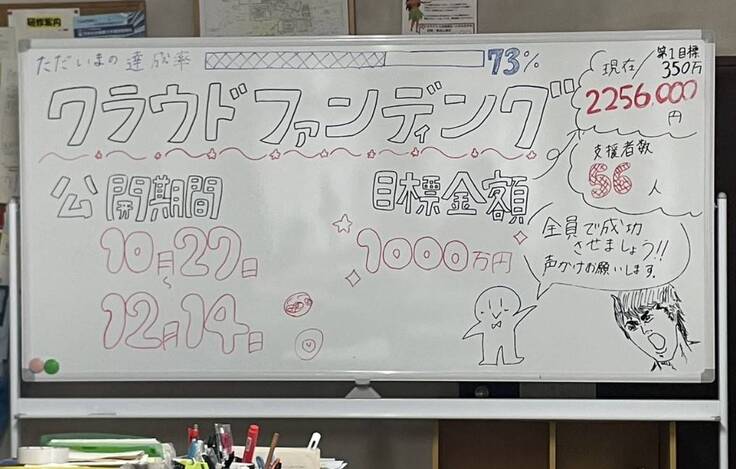 研修案内
ただいまの達成率 73%
第1目標
現在/350万
2256,000
円
クラウドファンディング
支援者数
56人
公開期間
目標金額
10月27日
~
12月14日
1000万円
全員で成功
させましょう!!
声かけお願いします.